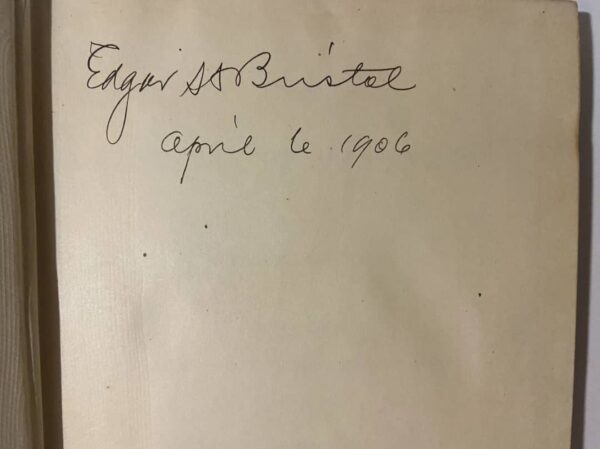 Edgar H Bristol
April 6 1906